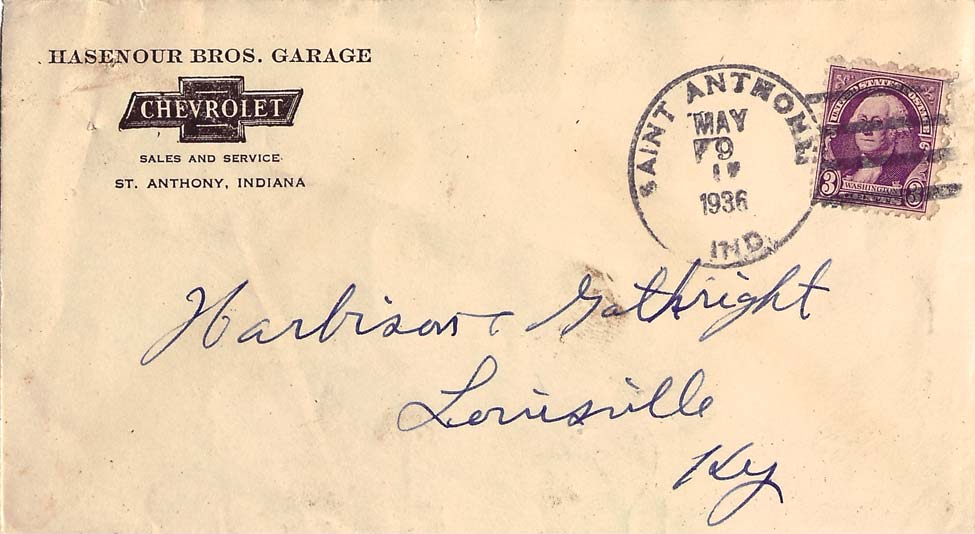 HASENOUR BROS. GARAGE
CHEVROLET
SALES AND SERVICE
ST. ANTHONY, INDIANA
SAINT ANTHONY
MAY
9
1936
IND.
UNITED STATES POSTAGE
3 WASHINGTON 3
CENTS
Harbison & Gathright
Louisville
Ky